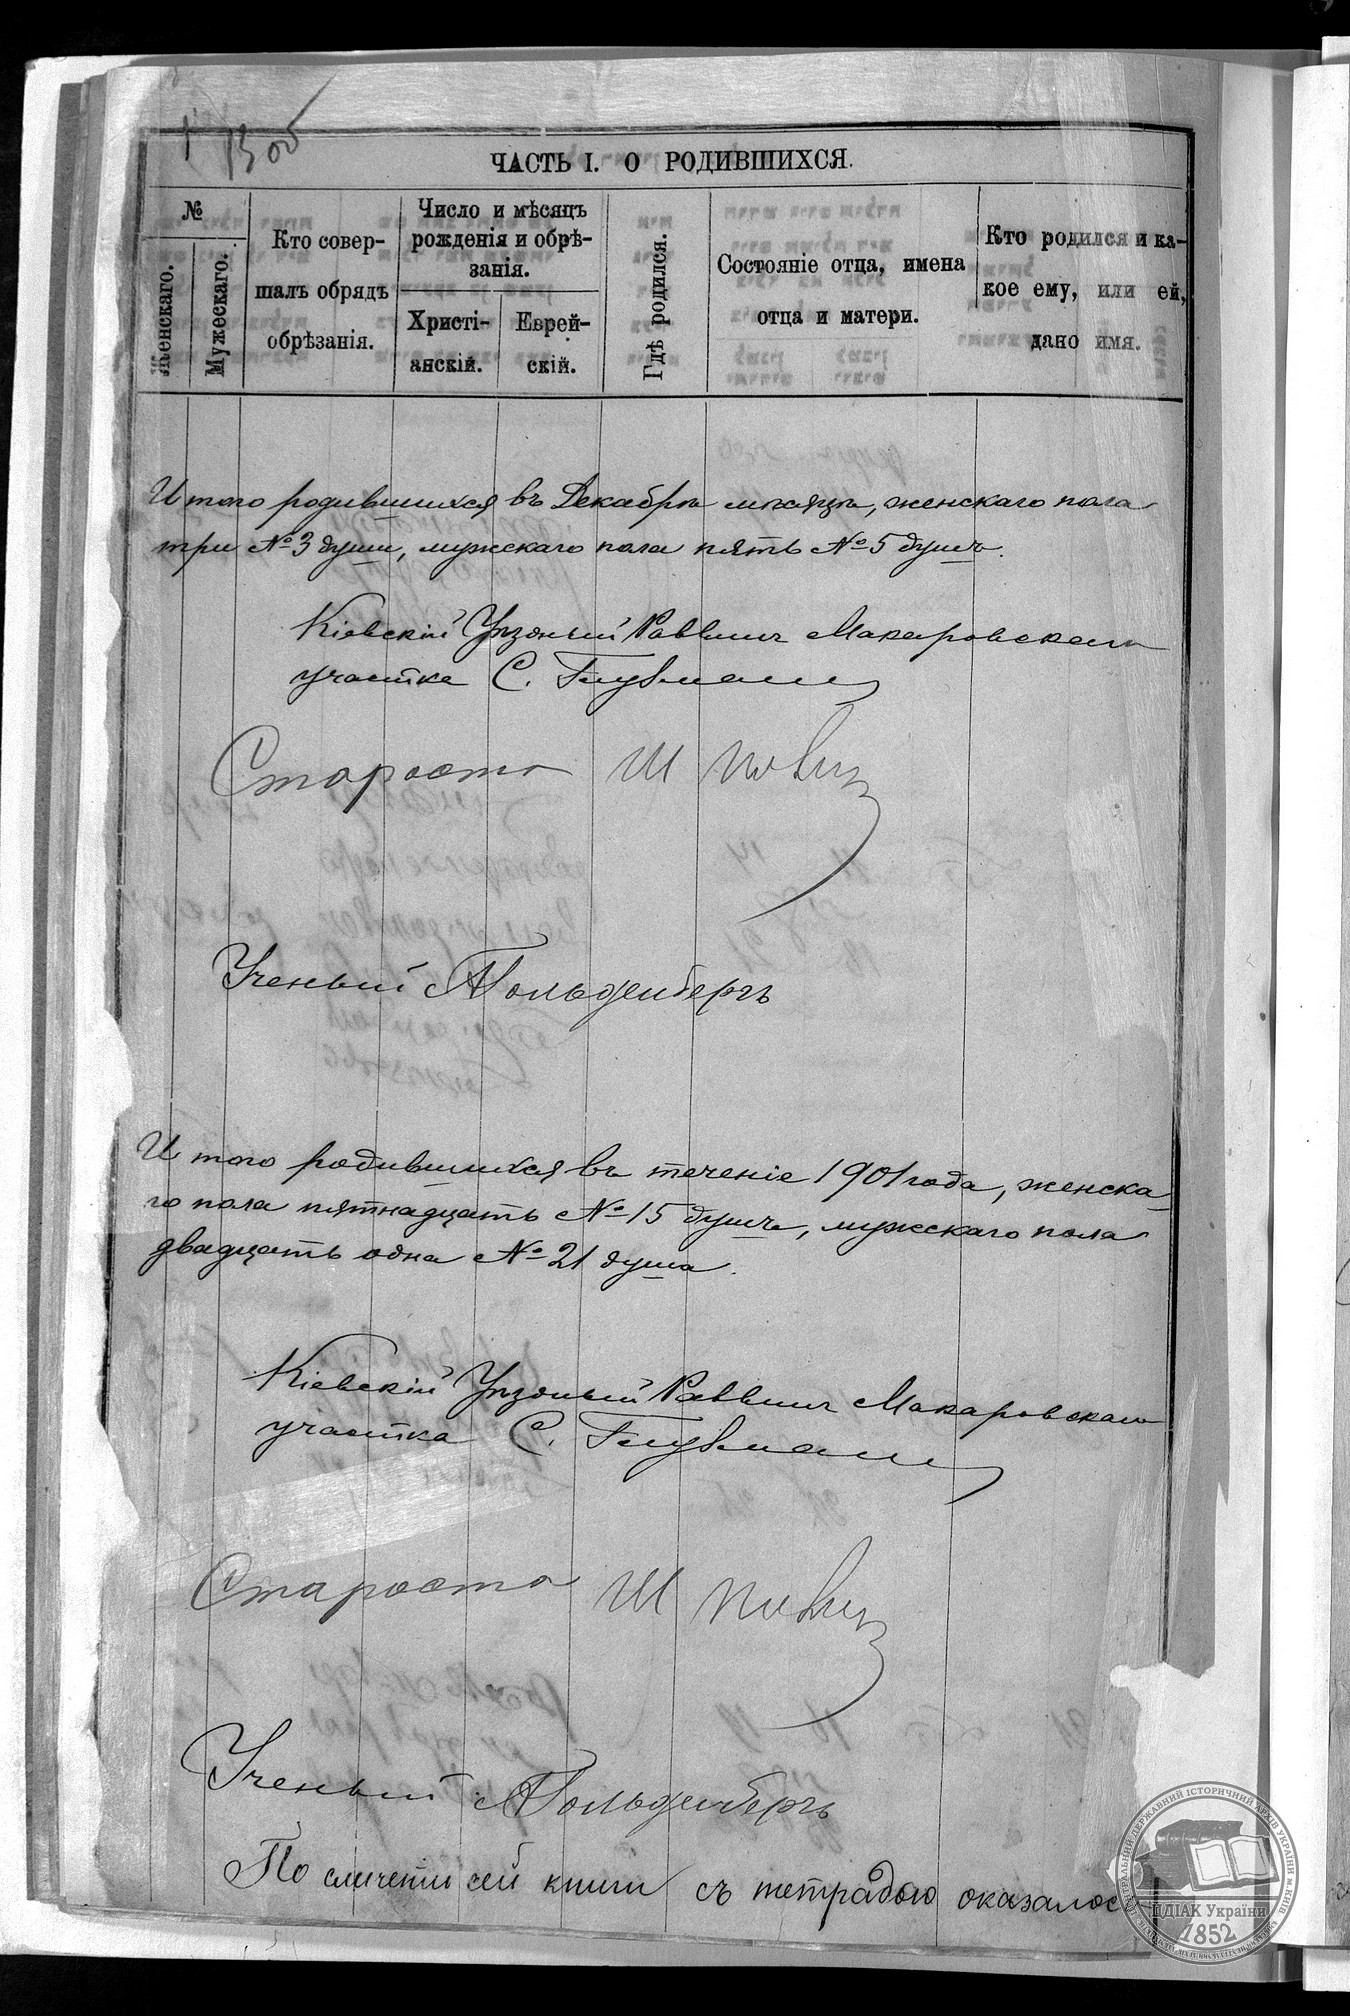 13 об
ЧАСТЬ I. О РОДИВШИХСЯ.
№
Женскаго.
Мужескаго.
Кто совер-
шалъ обрядъ
обрѣзанія.
Число и мѣсяцъ
рожденія и обрѣ-
занія.
Христі-
анскій.
Еврей-
скій.
Гдѣ родился.
Состояніе отца, имена
отца и матери.
Кто родился и ка-
кое ему, или ей,
дано имя.
Итого родившихся въ Декабрѣ мѣсяцѣ, женскаго пола
три № 3 души, мужскаго пола пять № 5 душъ.
Кіевскій Уѣздный Раввинъ Макаровскаго
участка С.
Староста Ш
Ученый Гольденбергъ
Итого родившихся въ теченіе 1901 года, женска
го пола пятнадцать № 15 душъ, мужскаго пола
двадцать одна № 21 душа.
Кіевскій Уѣздный Раввинъ Макаровскаго
участка С.
Староста Ш
Ученый Гольденбергъ
По сличеніи сей книги съ тетрадью оказалось
ЦЕНТРАЛЬНИЙ ДЕРЖАВНИЙ ІСТОРИЧНИЙ АРХІВ УКРАЇНИ М.КИЇВ
ЦДІАК України
1852